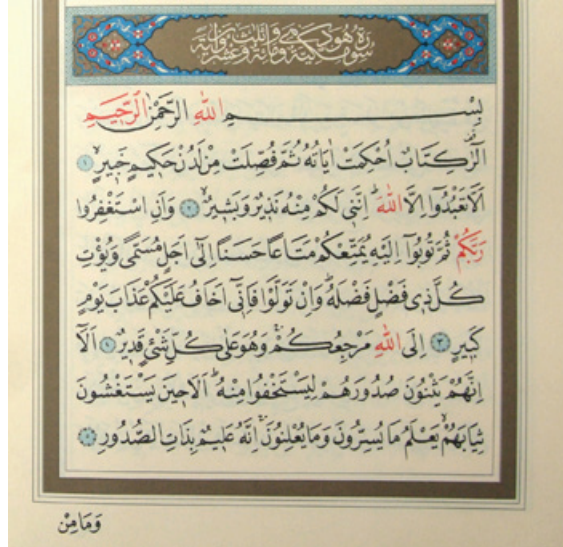 سورة هود مكية وهى مائة وثلث وعشرون آية
بِسْمِ اللّٰهِ الرَّحْمٰنِ الرَّحِيمِ
الٓرٰ كِتَابٌ اُحْكِمَتْ اٰيَاتُهُ ثُمَّ فُصِّلَتْ مِنْ لَدُنْ حَكِيمٍ خَبِيرٍۙ ١
اَلَّا تَعْبُدُٓوا اِلَّا اللّٰهَۜ اِنَّنِى لَكُمْ مِنْهُ نَذِيرٌ وَبَشِيرٌۙ ٢ وَاَنِ اسْتَغْفِرُوا
رَبَّكُمْ ثُمَّ تُوبُٓوا اِلَيْهِ يُمَتِّعْكُمْ مَتَاعًا حَسَنًا اِلٰٓى اَجَلٍ مُسَمًّى وَيُؤْتِ
كُلَّ ذِى فَضْلٍ فَضْلَهُۜ وَاِنْ تَوَلَّوْا فَاِنِّٓى اَخَافُ عَلَيْكُمْ عَذَابَ يَوْمٍ
كَبِيرٍ ٣ اِلَى اللّٰهِ مَرْجِعُكُمْۚ وَهُوَ عَلٰى كُلِّ شَىْءٍ قَدِيرٌ ٤ اَلَٓا
اِنَّهُمْ يَثْنُونَ صُدُورَهُمْ لِيَسْتَخْفُوا مِنْهُۜ اَلَا حِينَ يَسْتَغْشُونَ
ثِيَابَهُمْۙ يَعْلَمُ مَا يُسِرُّونَ وَمَا يُعْلِنُونَۚ اِنَّهُ عَلِيمٌ بِذَاتِ الصُّدُورِ ٥
وَمَا مِنْ